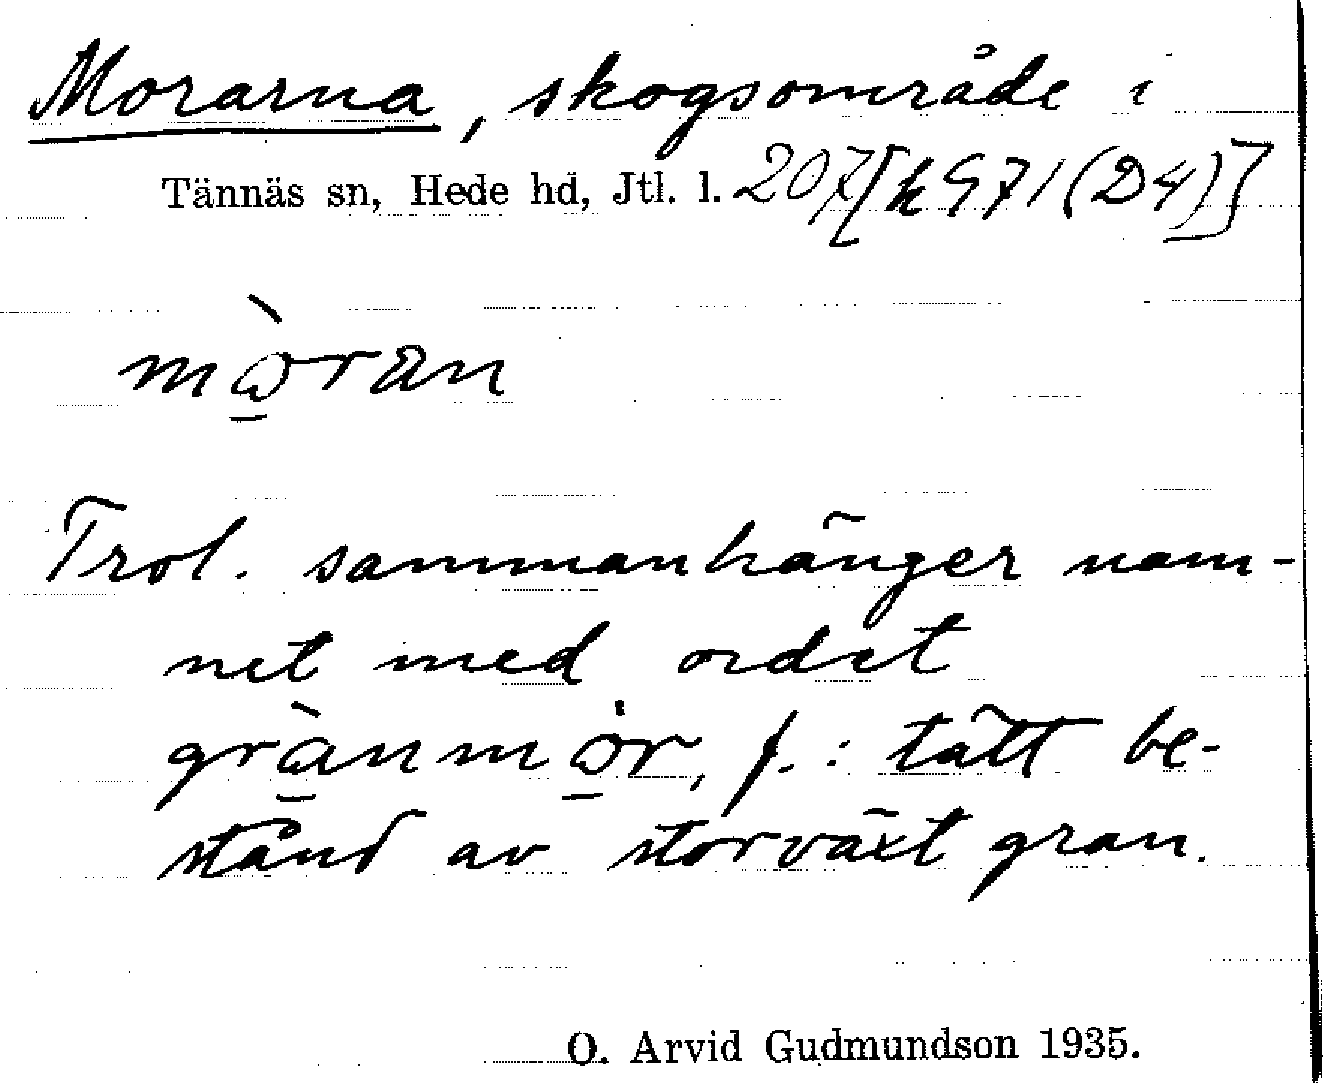 Morarna, skogsområde i
Tännäs sn, Hede hd, Jtl. l. 207 [k 971 (D4)]
mò̠̠ran
Trol. sammanhänger nam-
net med ordet
grànmor, f.: tätt be-
stånd av storväxt gran.
O. Arvid Gudmundson 1935.